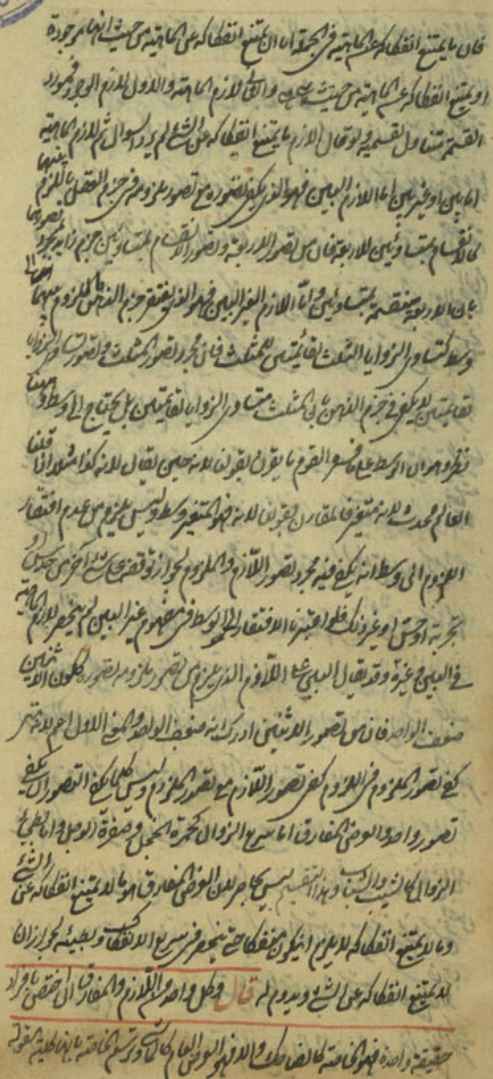 فان ما يمتنع انفكاكه عن الماهية في الجملة اما ان يمتنع انفكاكه عن الماهية من حيث انها موجودة
او يمتنع انفكاكه عن الماهية من حيث هي هي والثاني لازم الماهية والاول لازم الوجود فمورد
القسمة متناول لقسميه ولو قال اللازم ما يمتنع انفكاكه عن الشئ لم يرد السؤال ثم لازم الماهية
اما بين او غير بين اما اللازم البين فهو الذي يكفي تصوره مع تصور ملزومه في جزم العقل باللزوم بينهما
كالانقسام بمتساويين للاربعة فان من تصور الاربعة وتصور الانقسام بمتساويين جزم بمجرد تصورهما
بان الاربعة منقسمة بمتساويين واما اللازم الغير البين فهو الذي يفتقر جزم الذهن باللزوم بينهما الى
وسط كتساوي الزوايا الثلث لقائمتين للمثلث فان مجرد تصور المثلث وتصور تساوي الزوايا
لقائمتين لا يكفي في جزم الذهن بان المثلث متساوي الزوايا لقائمتين بل يحتاج الى وسط وههنا
نظر وهو ان الوسط على ما فسره القوم ما يقرن بقولنا لانه حين يقال لانه كذا مثلا اذا قلنا
العالم محدث لانه متغير فالمقارن بقولنا لانه وهو المتغير وسط وليس يلزم من عدم افتقار
اللزوم الى وسط انه يكفي فيه مجرد تصور اللازم والملزوم لجواز توقفه على شئ آخر من حدس او
تجربة او حس او غير ذلك فلو اعتبرنا الافتقار الى الوسط في مفهوم غير البين لم ينحصر لازم الماهية
في البين وغيره وقد يقال البين على اللازم الذي يلزم من تصور ملزومه تصوره ككون الاثنين
ضعف الواحد فان من تصور الاثنين ادرك انه ضعف الواحد والمعنى الاول اعم لانه متى
كفى تصور الملزوم في اللزوم كفى تصور اللازم مع تصور الملزوم وليس كلما يكفي التصوران يكفي
تصور واحد والعرض المفارق اما سريع الزوال كحمرة الخجل وصفرة الوجل واما بطئ
الزوال كالشيب والشباب وهذا التقسيم ليس بحاصر لان العرض المفارق هو ما لا يمتنع انفكاكه عن الشئ
وما لا يمتنع انفكاكه لا يلزم ان يكون منفكا حتى ينحصر في سريع الانفكاك وبطيئه لجواز ان
لا يمتنع انفكاكه عن الشئ ويدوم له قال وكل واحد من اللازم والمفارق ان اختص بافراد
حقيقة واحدة فهو الخاصة كالضاحك والا فهو العرض العام كالماشي وترسم الخاصة بانها كلية مقولة